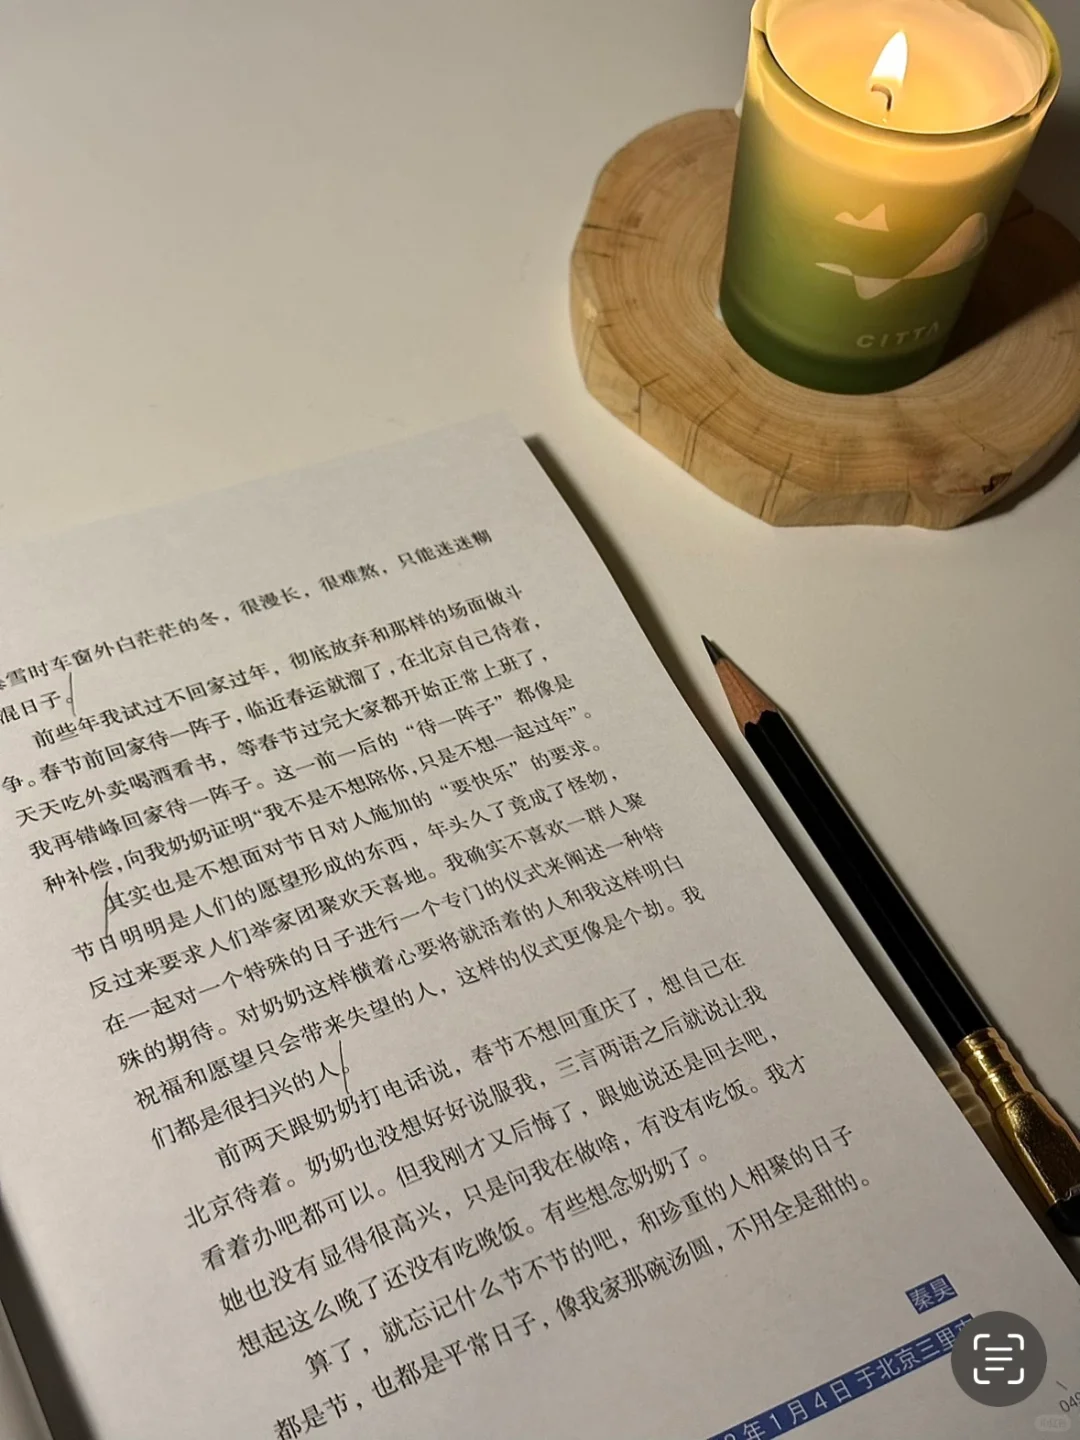 CITTA
雪时车窗外白茫茫的冬，很漫长，很难熬，只能迷迷糊
混日子。
前些年我试过不回家过年，彻底放弃和那样的场面做斗
争。春节前回家待一阵子，临近春运就溜了，在北京自己待着，
天天吃外卖喝酒看书，等春节过完大家都开始正常上班了，
我再错峰回家待一阵子。这一前一后的“待一阵子”都像是
种补偿，向我奶奶证明“我不是不想陪你，只是不想一起过年”。
其实也是不想面对节日对人施加的“要快乐”的要求。
节日明明是人们的愿望形成的东西，年头久了竟成了怪物，
反过来要求人们举家团聚欢天喜地。我确实不喜欢一群人聚
在一起对一个特殊的日子进行一个专门的仪式来阐述一种特
殊的期待。对奶奶这样横着心要将就活着的人和我这样明白
祝福和愿望只会带来失望的人，这样的仪式更像是个劫。我
们都是很扫兴的人。
前两天跟奶奶打电话说，春节不想回重庆了，想自己在
北京待着。奶奶也没想好好说服我，三言两语之后就说让我
看着办吧都可以。但我刚才又后悔了，跟她说还是回去吧，
她也没有显得很高兴，只是问我在做啥，有没有吃饭。我才
想起这么晚了还没有吃晚饭。有些想念奶奶了。
算了，就忘记什么节不节的吧，和珍重的人相聚的日子
都是节，也都是平常日子，像我家那碗汤圆，不用全是甜的。
秦昊
年1月4日 于北京三里